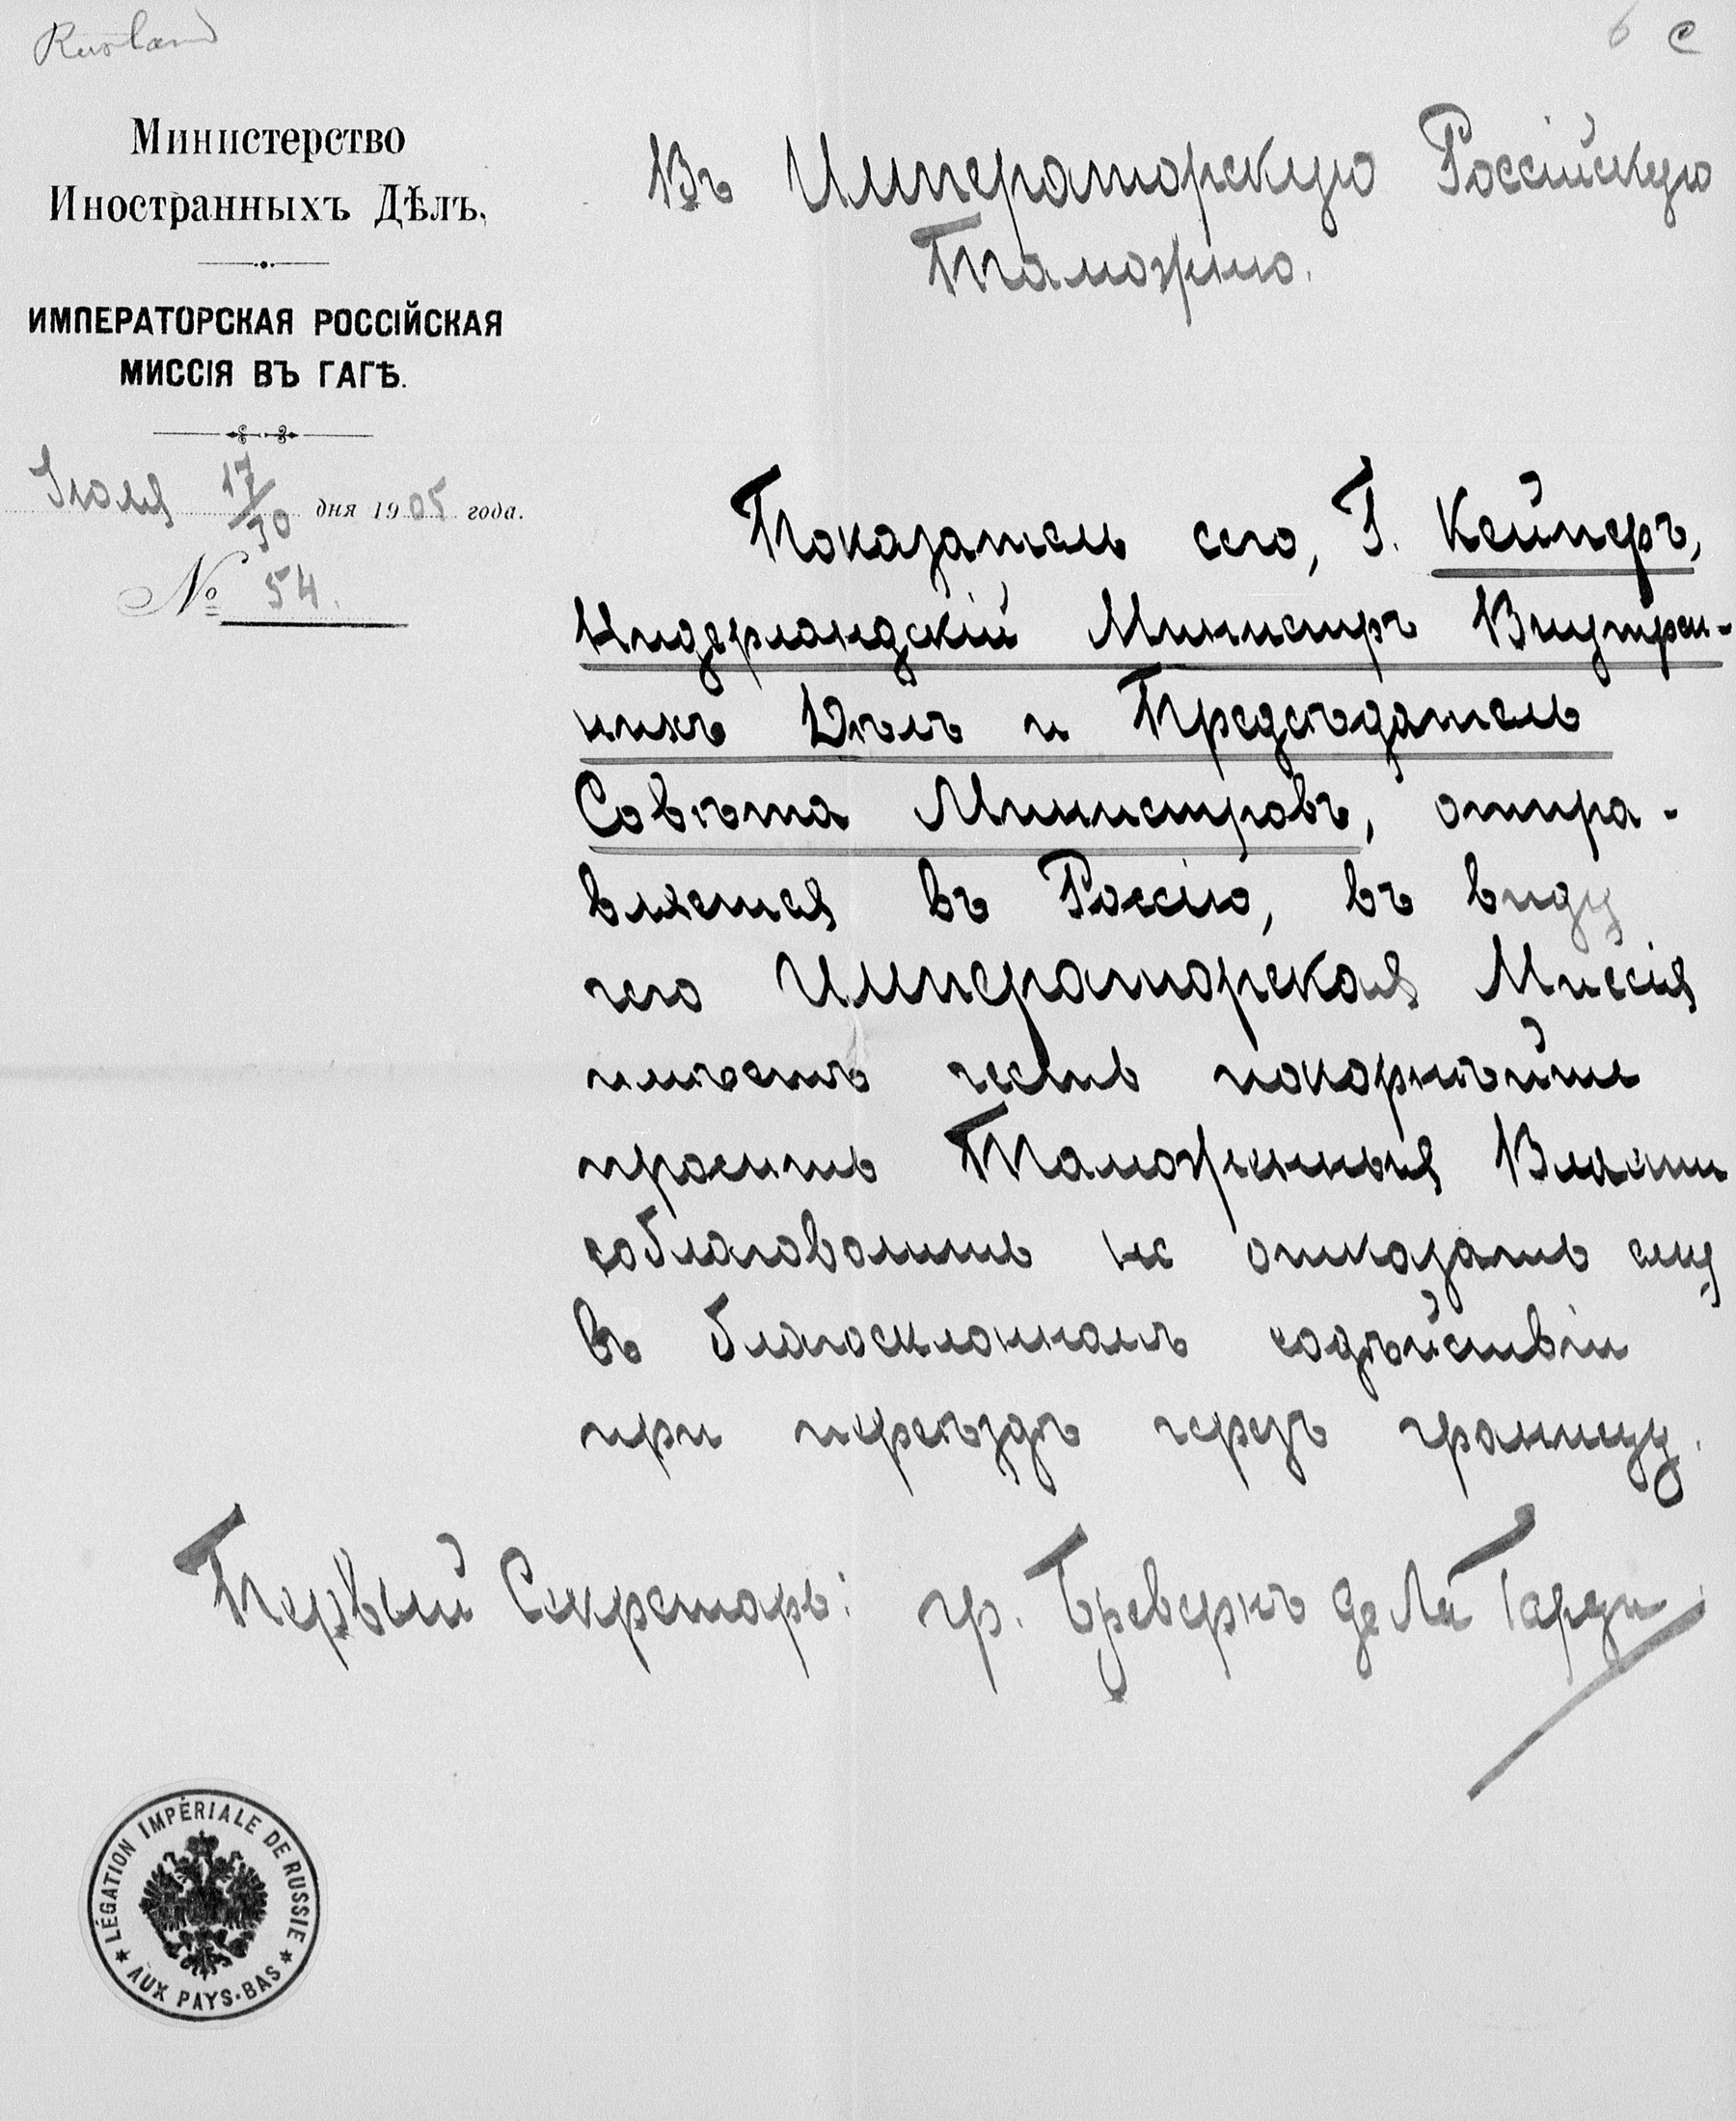 Rusland
6 C
Министерство
Иностранныхъ Дѣлъ.
ИМПЕРАТОРСКАЯ РОССІЙСКАЯ
МИССІЯ ВЪ ГАГѢ.
Іюля 17/30 дня 1905 года.
№ 54.
Въ Императорскую Россійскую
Таможню.
Показатель сего, Г. Кейперъ,
Нидерландскій Министръ Внутрен-
нихъ Дѣлъ и Предсѣдатель
Совѣта Министровъ, отпра-
вляется въ Россію, въ виду
чего Императорская Миссія
имѣетъ честь покорнѣйше
просить Таможенныя Власти
соблаговолить не отказать ему
въ благосклонномъ содѣйствіи
при переѣздѣ черезъ границу.
Первый Секретарь: гр. Бреверкъ де Ла Гарди
LÉGATION IMPÉRIALE DE RUSSIE
AUX PAYS-BAS